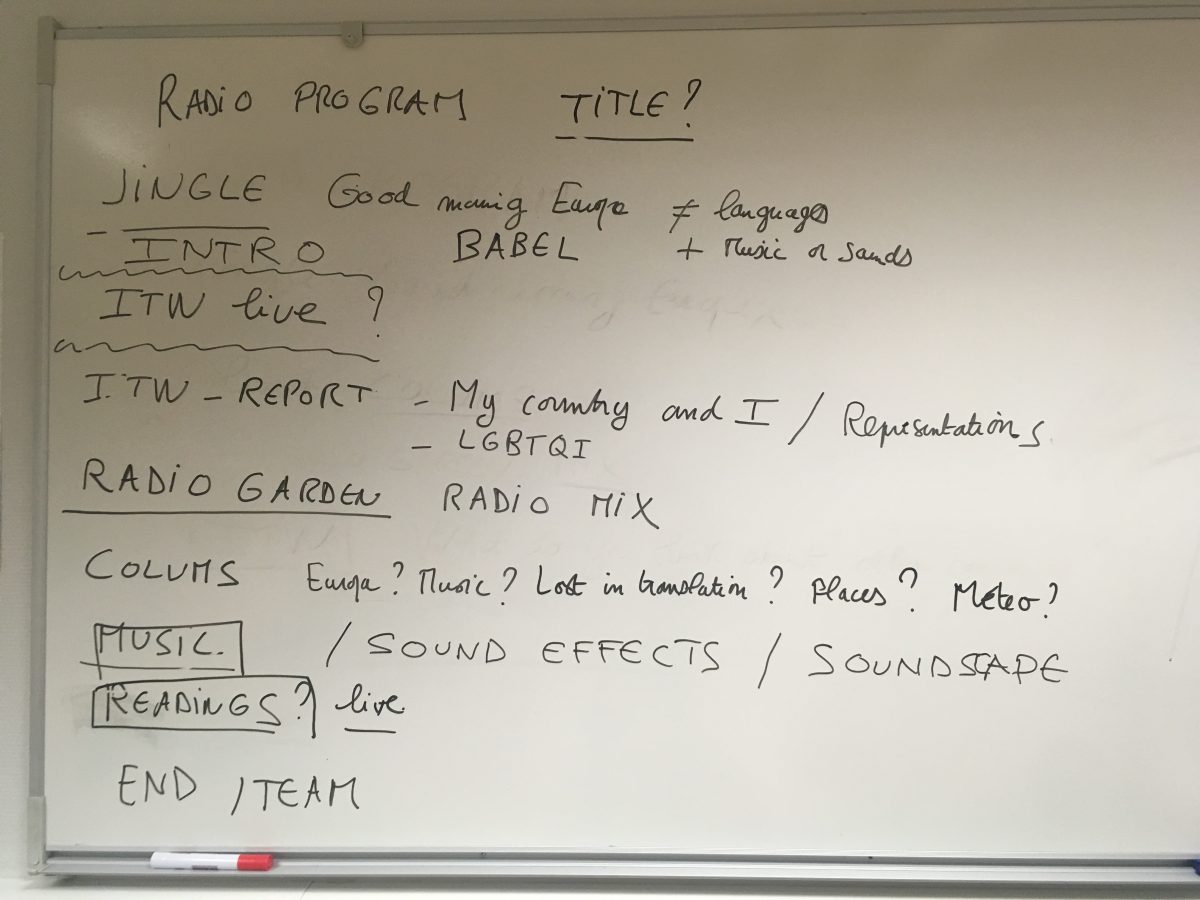 RADIO PROGRAM TITLE?
JINGLE Good morning Europe ≠ languages
INTRO BABEL + Music or Sounds
ITW live ?
ITW - REPORT - My country and I / Representations
- LGBTQI
RADIO GARDEN RADIO MIX
COLUMS Europa? Music? Lost in translation? Places? Meteo?
MUSIC. / SOUND EFFECTS / SOUNDSCAPE
READINGS? live
END / TEAM